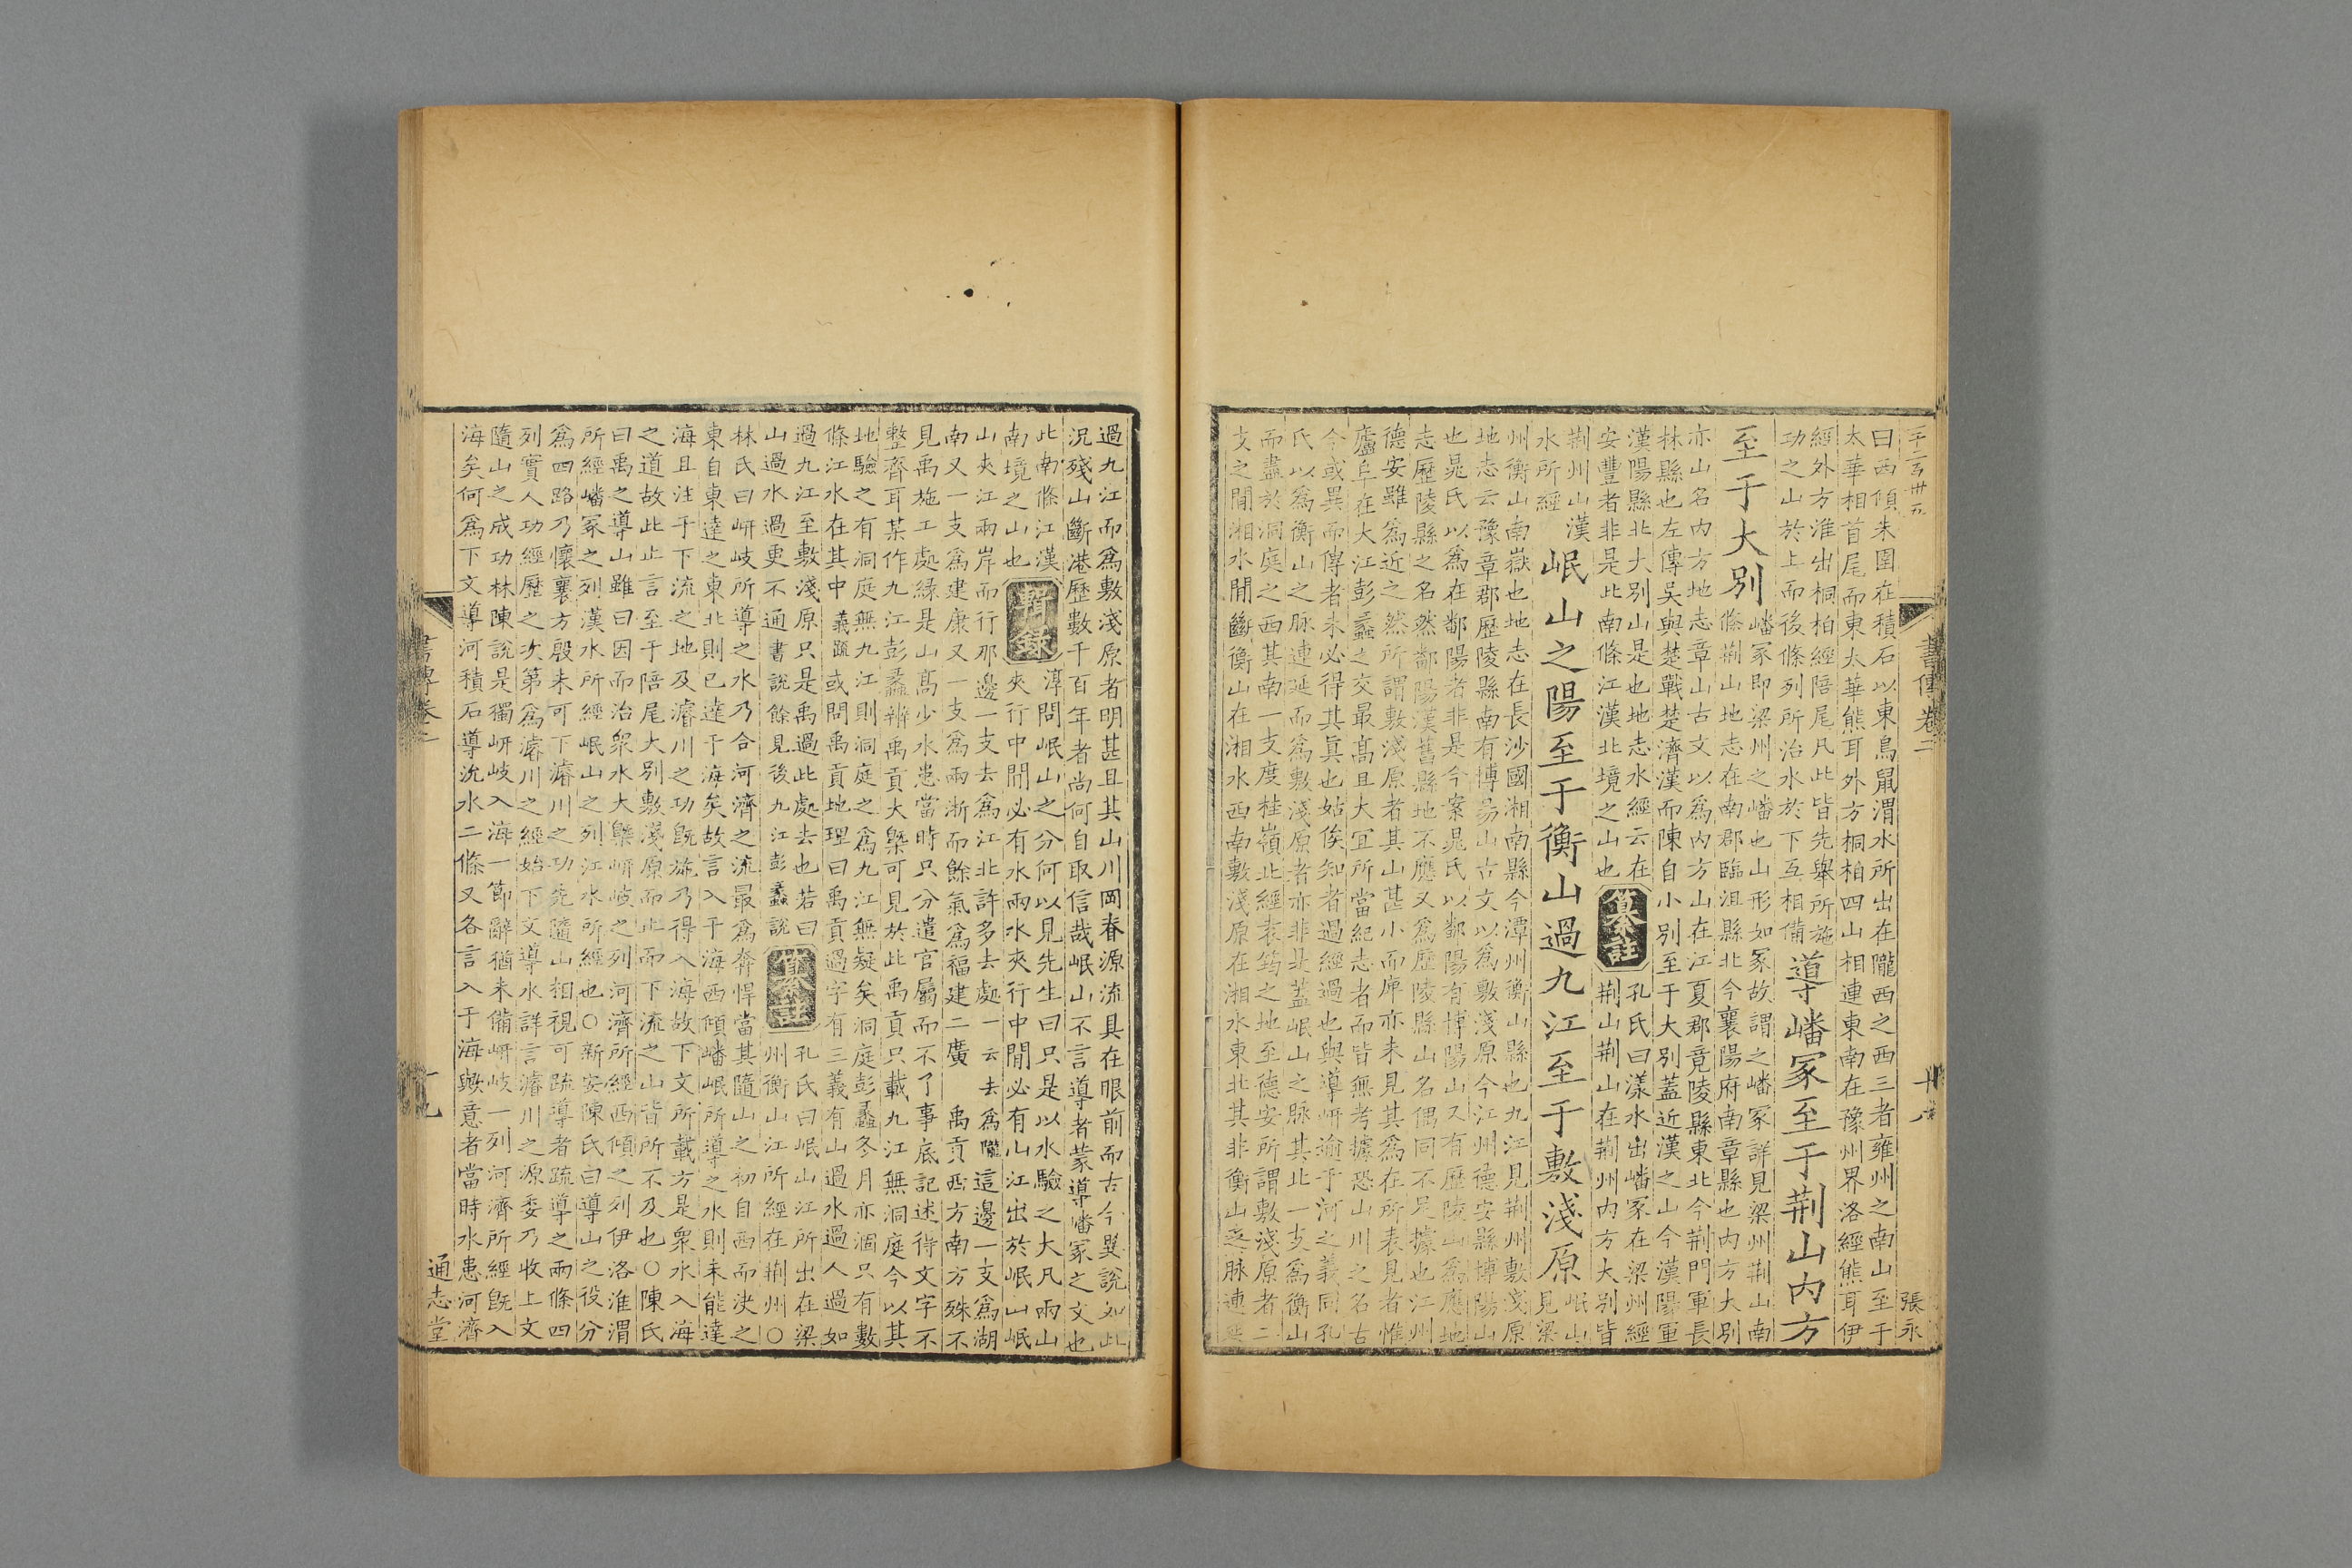 書傳卷二
張永
曰西傾朱圉在積石以東鳥鼠渭水所出在隴西之西三者雍州之南山至于
太華相首尾而東太華熊耳外方桐柏四山相連東南在豫州界洛經熊耳伊
經外方淮出桐柏經陪尾凡此皆先舉所施
功之山於上而後條列所治水於下互相備
導嶓冢至于荆山內方
至于大別
嶓冢即梁州之嶓也山形如冢故謂之嶓冢詳見梁州荆山南
條荆山地志在南郡臨沮縣北今襄陽府南章縣也內方大別
亦山名內方地志章山古文以爲內方山在江夏郡竟陵縣東北今荆門軍長
林縣也左傳吳與楚戰楚濟漢而陳自小別至于大別蓋近漢之山今漢陽軍
漢陽縣北大別山是也地志水經云在
安豐者非是此南條江漢北境之山也
纂註
孔氏曰漾水出嶓冢在梁州經
荆山荆山在荆州內方大別皆
荆州山漢
水所經
岷山之陽至于衡山過九江至于敷淺原
岷山
見梁
州衡山南嶽也地志在長沙國湘南縣今潭州衡山縣也九江見荆州敷淺原
地志云豫章郡歷陵縣南有博昜山古文以爲敷淺原今江州德安縣博陽山
也晁氏以爲在鄱陽者非是今案晁氏以鄱陽有博陽山又有歷陵山爲應地
志歷陵縣之名然鄱陽漢舊縣地不應又爲歷陵縣山名偶同不足據也江州
德安雖爲近之然所謂敷淺原者其山甚小而庳亦未見其爲在所表見者惟
廬阜在大江彭蠡之交最髙且大宜所當紀志者而皆無考據恐山川之名古
今或異而傳者未必得其眞也姑俟知者過經過也與導岍逾于河之義同孔
氏以爲衡山之脉連延而爲敷淺原者亦非是蓋岷山之脉其北一支爲衡山
而盡於洞庭之西其南一支度桂嶺北經袁筠之地至德安所謂敷淺原者二
支之閒湘水閒斷衡山在湘水西南敷淺原在湘水東北其非衡山之脉連延
過九江而爲敷淺原者明甚且其山川岡脊源流具在眼前而古今異說如此
況殘山斷港歷數千百年者尚何自取信哉岷山不言導者蒙導嶓冢之文也
此南條江漢
南境之山也
輯錄
淳問岷山之分何以見先生曰只是以水驗之大凡兩山
夾行中閒必有水兩水夾行中閒必有山江出於岷山岷
山夾江兩岸而行那邊一支去爲江北許多去處一云去爲隴這邊一支爲湖
南又一支爲建康又一支爲兩浙而餘氣爲福建二廣　禹貢西方南方殊不
見禹施工處緣是山髙少水患當時只分遣官屬而不了事底記述得文字不
整齊耳某作九江彭蠡辨禹貢大槩可見於此禹貢只載九江無洞庭今以其
地驗之有洞庭無九江則洞庭之爲九江無疑矣洞庭彭蠡冬月亦涸只有數
條江水在其中　義疏或問禹貢地理曰禹貢過字有三義有山過水過人過如
過九江至敷淺原只是禹過此處去也若曰
山過水過更不通書說餘見後九江彭蠡說
纂註
孔氏曰岷山江所出在梁
州衡山江所經在荆州○
林氏曰岍岐所導之水乃合河濟之流最爲奔悍當其隨山之初自西而決之
東自東達之東北則已達于海矣故言入于海西傾嶓岷所導之水則未能達
海且注于下流之地及濬川之功旣施乃得入海故下文所載方是衆水入海
之道故此止言至于陪尾大別敷淺原而止而下流之山皆所不及也○陳氏
曰禹之導山雖曰因而治衆水大槩岍岐之列河濟所經西傾之列伊洛淮渭
所經嶓冢之列漢水所經岷山之列江水所經也○新安陳氏曰導山之役分
爲四路乃懷襄方殷未可下濬川之功先隨山相視可疏導者疏導之兩條四
列實人功經歷之次第爲濬川之經始下文導水詳言濬川之源委乃收上文
隨山之成功林陳說是獨岍岐入海一節辭猶未備岍岐一列河濟所經旣入
海矣何爲下文導河積石導沇水二條又各言入于海歟意者當時水患河濟
書傳卷二
十九
通志堂